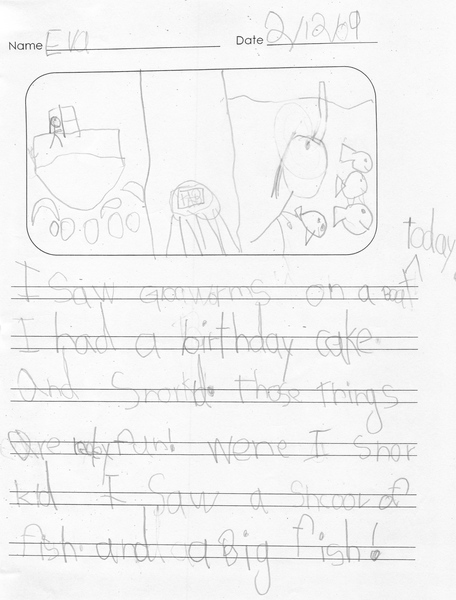 Name Eva Date 2/12/09
today
I Saw Gloowworms on a Boat
I had a birthday cake.
And Snorkld. those things
are realy fun! Wene I snor
kld I Saw a Shcool of
fish. and a Big fish!